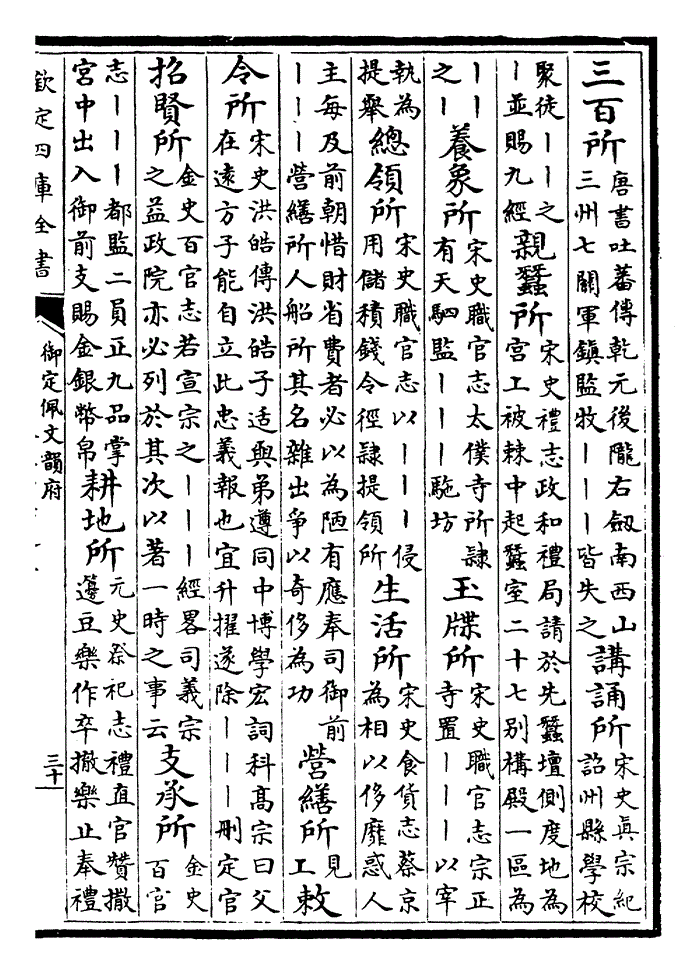 三百所
唐書吐蕃傳乾元後隴右劒南西山
三州七關軍鎮監牧丨丨丨皆失之
講誦所
宋史真宗紀
詔州縣學校
聚徒丨丨之
丨並賜九經
親蠶所
宋史禮志政和禮局請於先蠶壇側度地為
宮工被棘中起蠶室二十七别構殿一區為
丨丨
之丨
養象所
宋史職官志太僕寺所隷
有天駟監丨丨丨駞坊
玉牒所
宋史職官志宗正
寺置丨丨丨以宰
執為
提舉
總領所
宋史職官志以丨丨丨侵
用儲積錢令徑隷提領所
生活所
宋史食貨志蔡京
為相以侈靡惑人
主每及前朝惜財省費者必以為陋有應奉司御前
丨丨丨營繕所人船所其名雜出爭以奇侈為功
營繕所
見
工
敕
令所
宋史洪皓傳洪皓子适與弟遵同中博學宏詞科高宗曰父
在遠方子能自立此忠義報也宜升擢遂除丨丨丨刪定官
招賢所
金史百官志若宣宗之丨丨丨經畧司義宗
之益政院亦必列於其次以著一時之事云
支承所
金史
百官
志丨丨丨都監二員正九品掌
宮中出入御前支賜金銀幣帛
耕地所
元史祭祀志禮直官贊撤
籩豆樂作卒撤樂止奉禮
欽定四庫全書
御定佩文韻府
三十